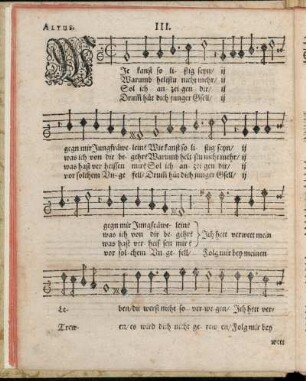 ALTUS.
III.
WIe kanst so li- stig seyn/ ij
Warumb heltstu nicht mehr/ ij
Sol ich an- zei gen dir/ ij
Drumb hüt dich junger Gsell/ ij
gegn mir Jungfräwe- lein? Wie kanst so li- stig seyn/ ij
was ich von dir be- gehr? Warumb helt- stu nicht mehr/ ij
was hast ver heissen mir? Sol ich an- zei gen dir/ ij
vor solchem Un- ge- fell/ Drumb hüt dich junger Gsell/ ij
gegn mir Jungfräwe- lein?
was ich von dir be- gehr? Ich hett verwett mein
was hast ver heis sen mir?
vor sol- chem Un- ge- fell/ Folg mir bey meinen
Le- ben/ du werst nicht so ver- we- gen/ Ich hett ver-
Trew- en/ es wird dich nicht ge- rew en/ Folg mir bey
wett